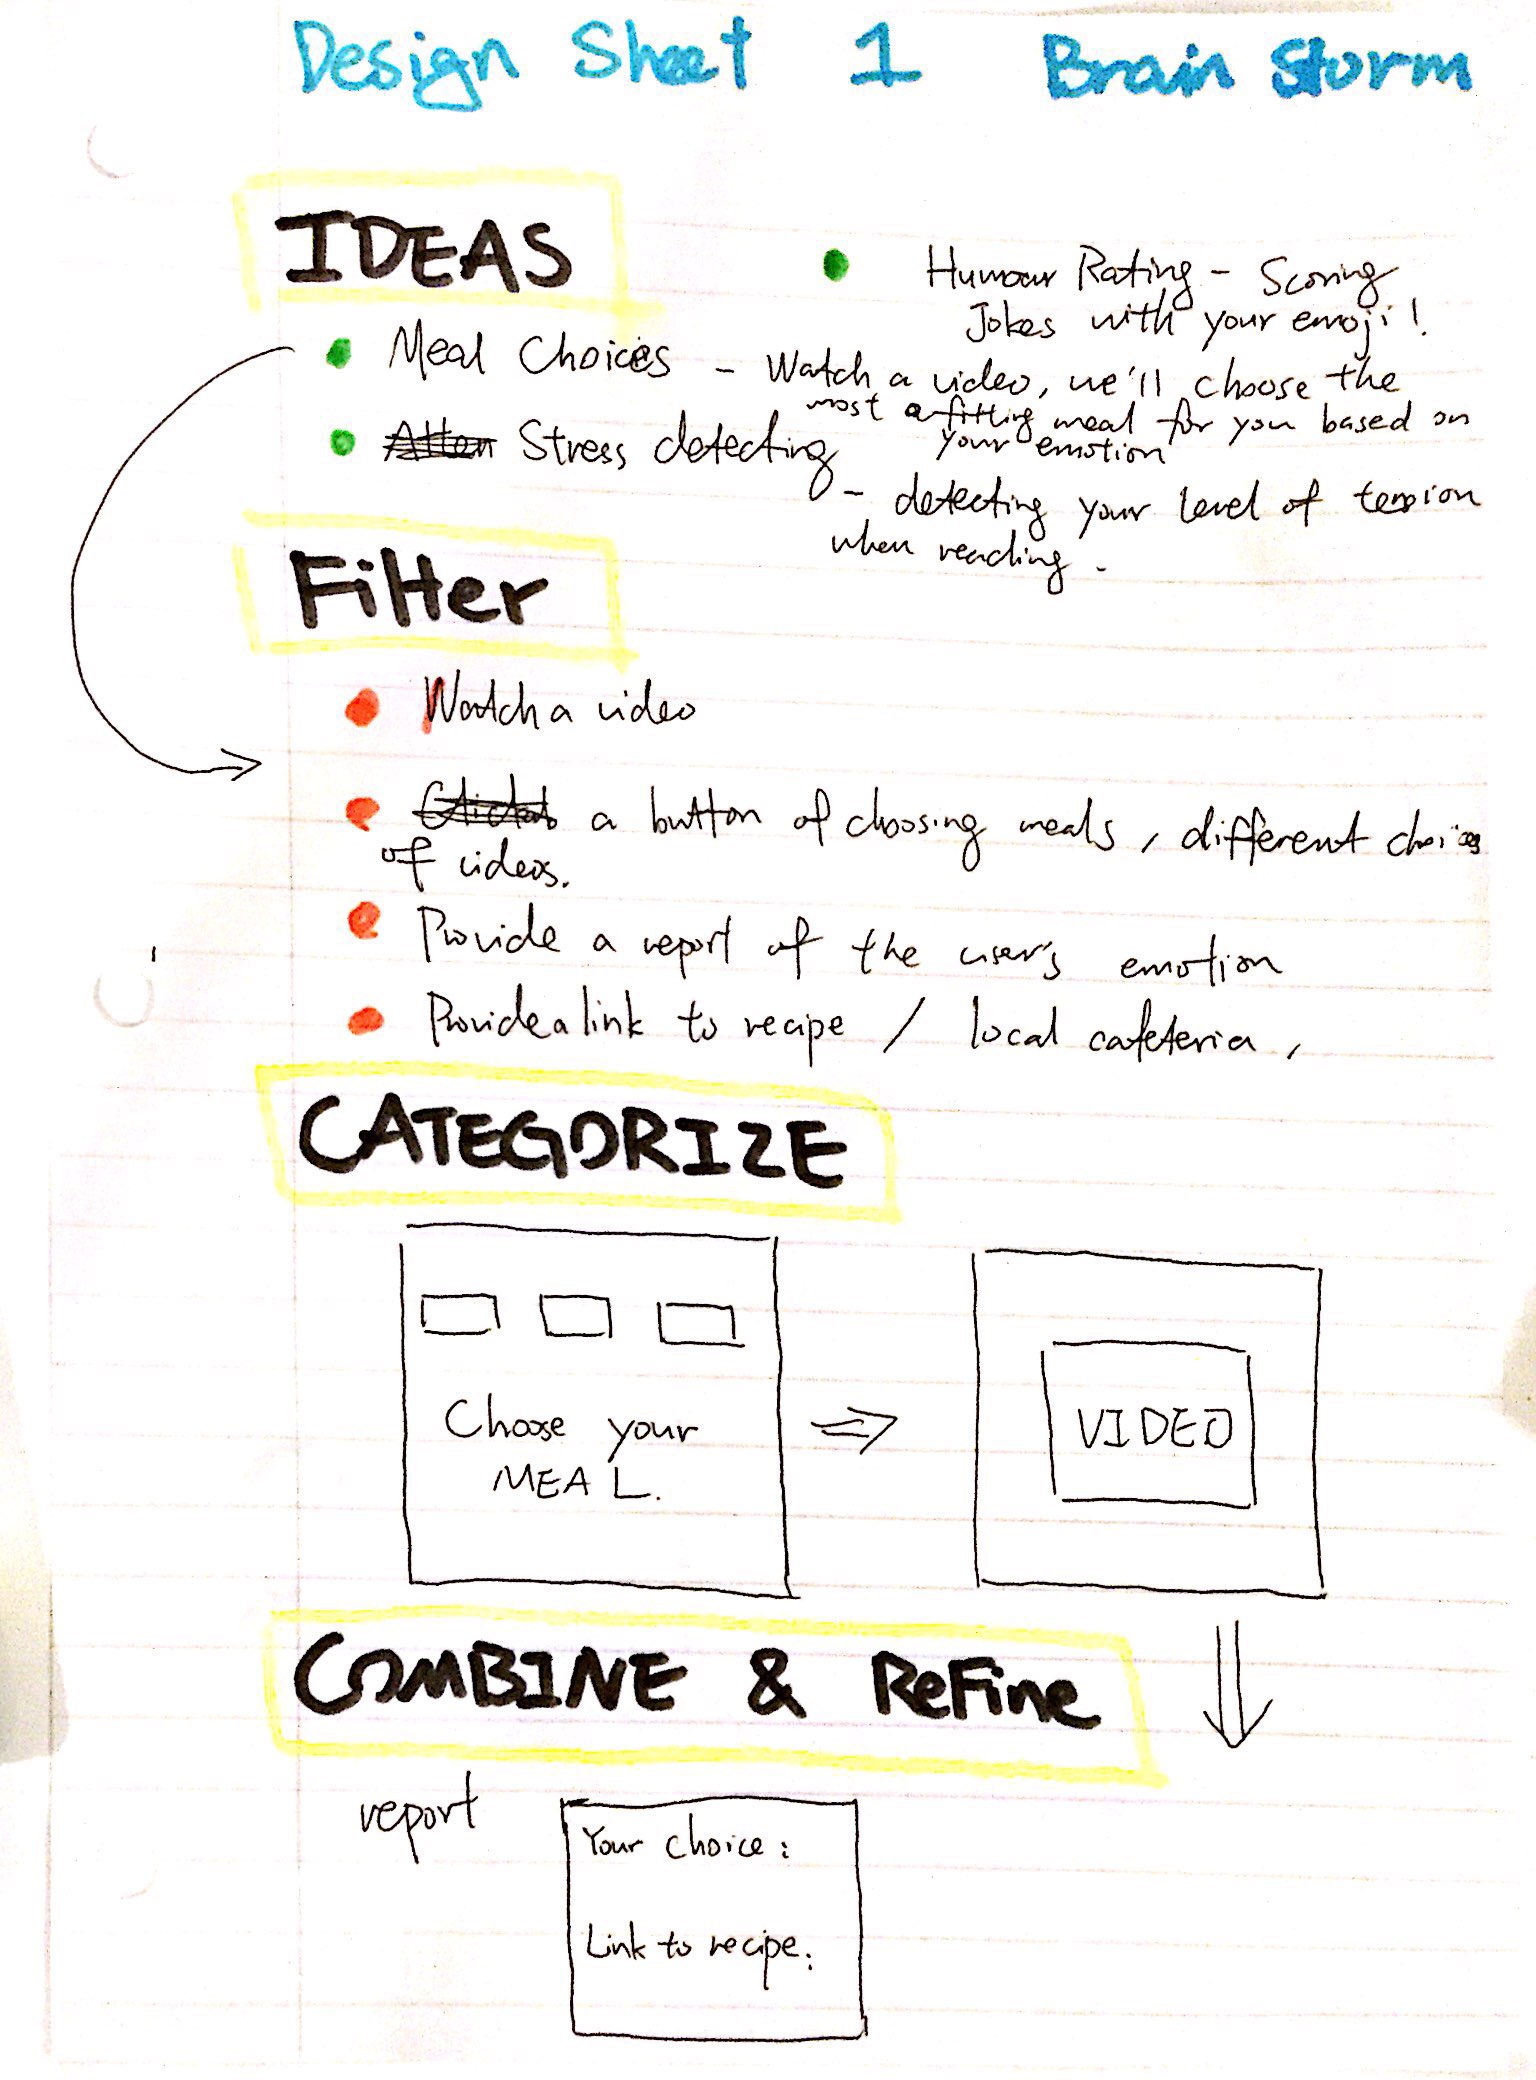 Design Sheet 1 Brain Storm
IDEAS
Humour Rating - Scoring
Jokes with your emoji!
Meal Choices - Watch a video, we'll choose the
most a fitting meal for you based on
your emotion
Stress detecting
- detecting your level of tension
when reading.
Filter
Watch a video
a button of choosing meals, different choices
of videos.
Provide a report of the user's emotion
Provide a link to recipe / local cafeteria,
CATEGORIZE
Choose your
MEAL.
VIDEO
COMBINE & Refine
report
Your choice:
Link to recipe: